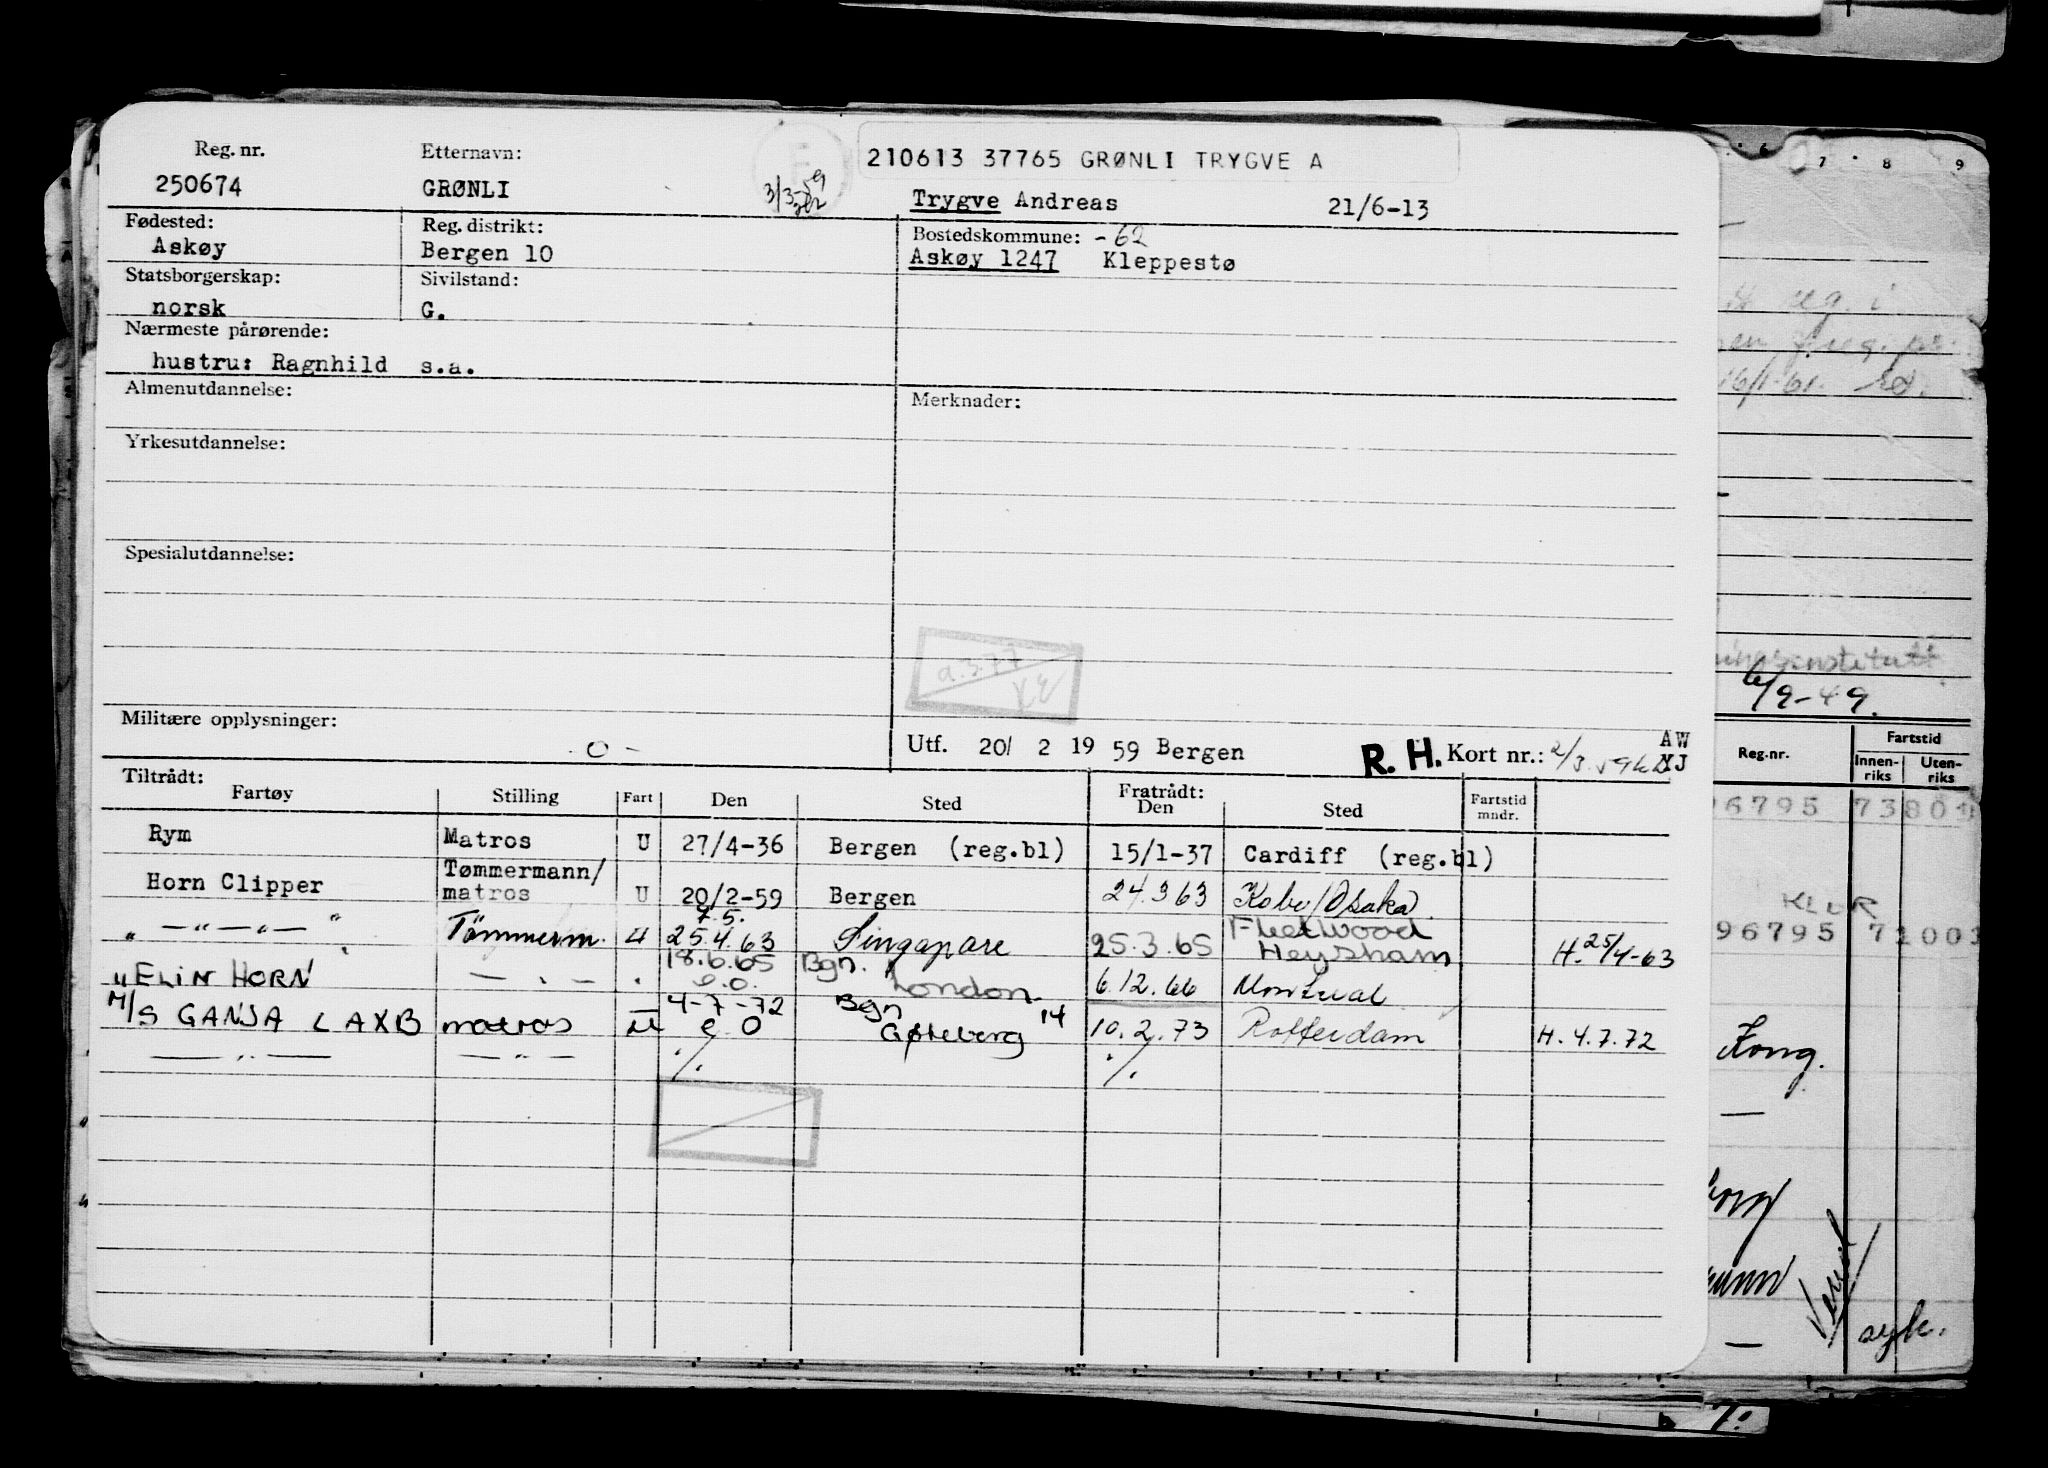 Reg. nr. Etternavn: 210613 37765 GRØNLI TRYGVE A
250674 GRØNLI Trygve Andreas 21/6-13
Fødested: Reg. distrikt: Bostedskommune: -62
Askøy Bergen 10 Askøy 1247 Kleppestø
Statsborgerskap: Sivilstand:
norsk G.
Nærmeste pårørende:
hustru: Ragnhild s.a.
Almenutdannelse: Merknader:
Yrkesutdannelse:
Spesialutdannelse:
Militære opplysninger: -0- Utf. 20/ 2 19 59 Bergen R. H. Kort nr.: AW
Tiltrådt: Fratrådt:
Fartøy Stilling Fart Den Sted Den Sted Fartstid mndr.
Rym Matros U 27/4-36 Bergen (reg.bl) 15/1-37 Cardiff (reg.bl)
Horn Clipper Tømmermann/ matros U 20/2-59 Bergen 24.3 63 Kobe/Osaka
7.5.
" — " — " — " Tømmerm. U 25.4.63 Singapore 25.3.65 Fleetwood Heysham H. 25/4-63
18.6.65 Bgn.
" ELIN HORN — " — " e.o. London 6.12.66 Montreal
4-7-72 Bgn
M/S GANJA LAXB matros U e O Gøteborg 14 10.2.73 Rotterdam H. 4.7.72
— " — — " — ·/· ·/·
6 7 8 9
16/1-61.
6/9-49.
Reg.nr. Fartstid
Innen-riks Uten-riks
96795
96795
Kong.
syk.